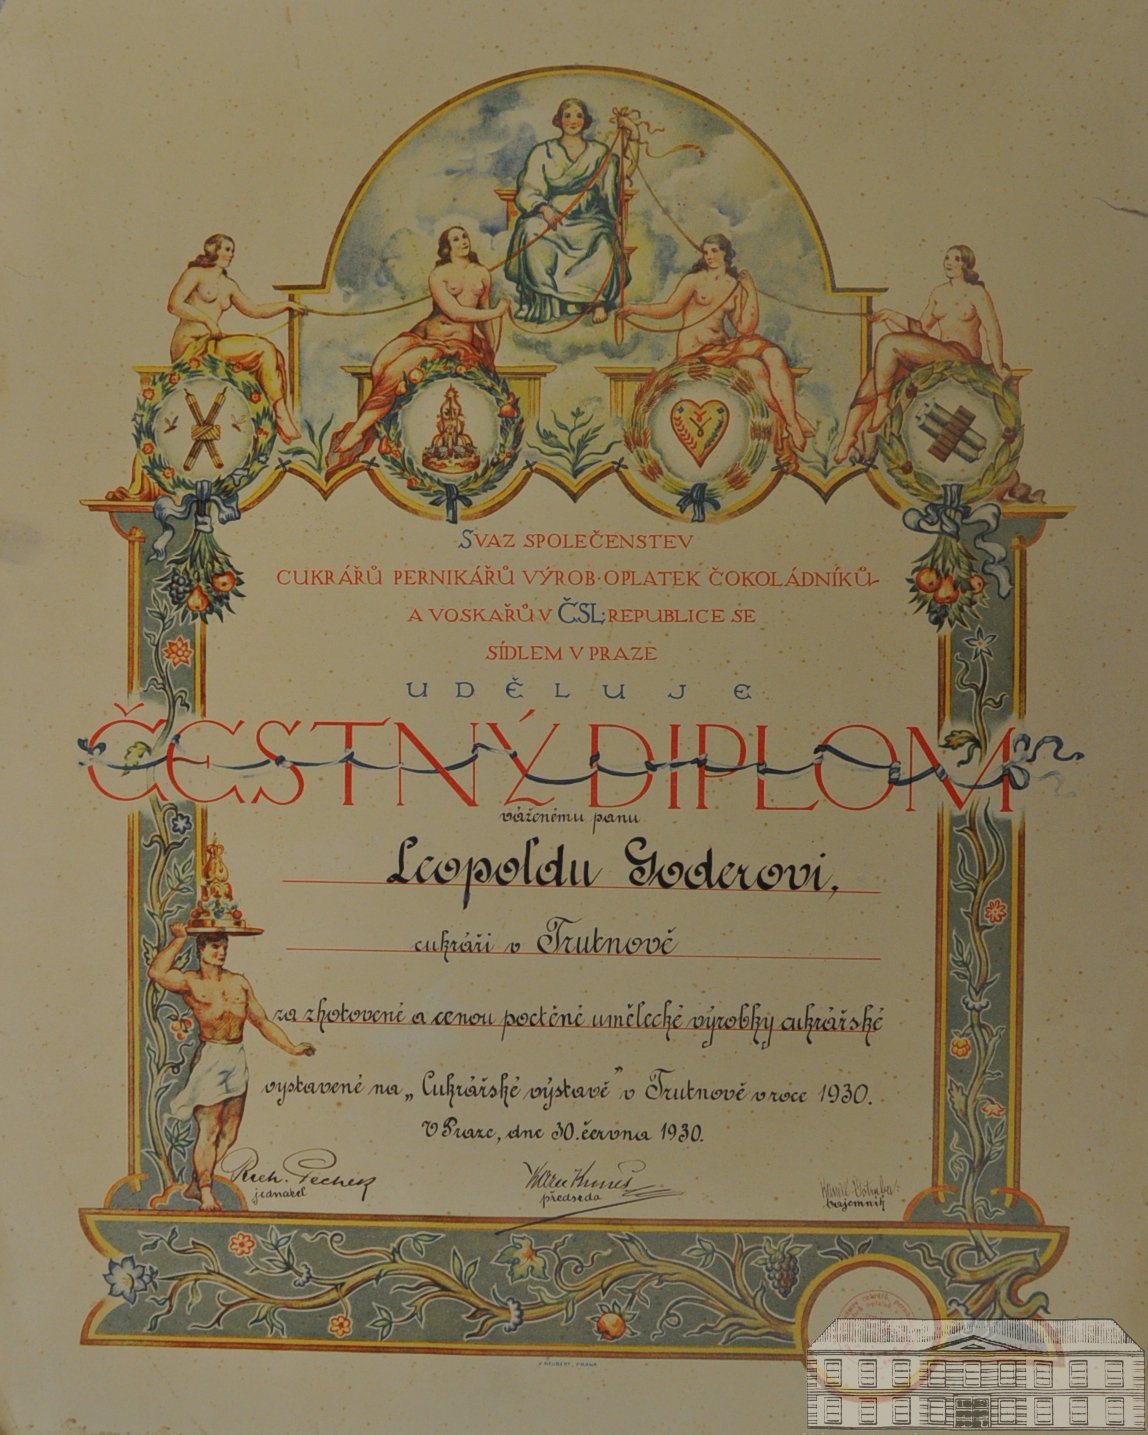 SVAZ SPOLEČENSTEV
CUKRÁŘŮ PERNIKÁŘŮ VÝROB·OPLATEK ČOKOLÁDNÍKŮ-
A VOSKAŘŮ V ČSL·REPUBLICE SE
SÍDLEM V PRAZE
UDĚLUJE
ČESTNÝ DIPLOM
váženému panu
Leopoldu Goderovi,
cukráři v Trutnově
za zhotovené a cenou poctěné umělecké výrobky cukrářské
vystavené na „Cukrářské výstavě" v Trutnově v roce 1930.
V Praze, dne 30. června 1930.
jednatel
předseda
tajemník
V NEUBERT, PRAHA